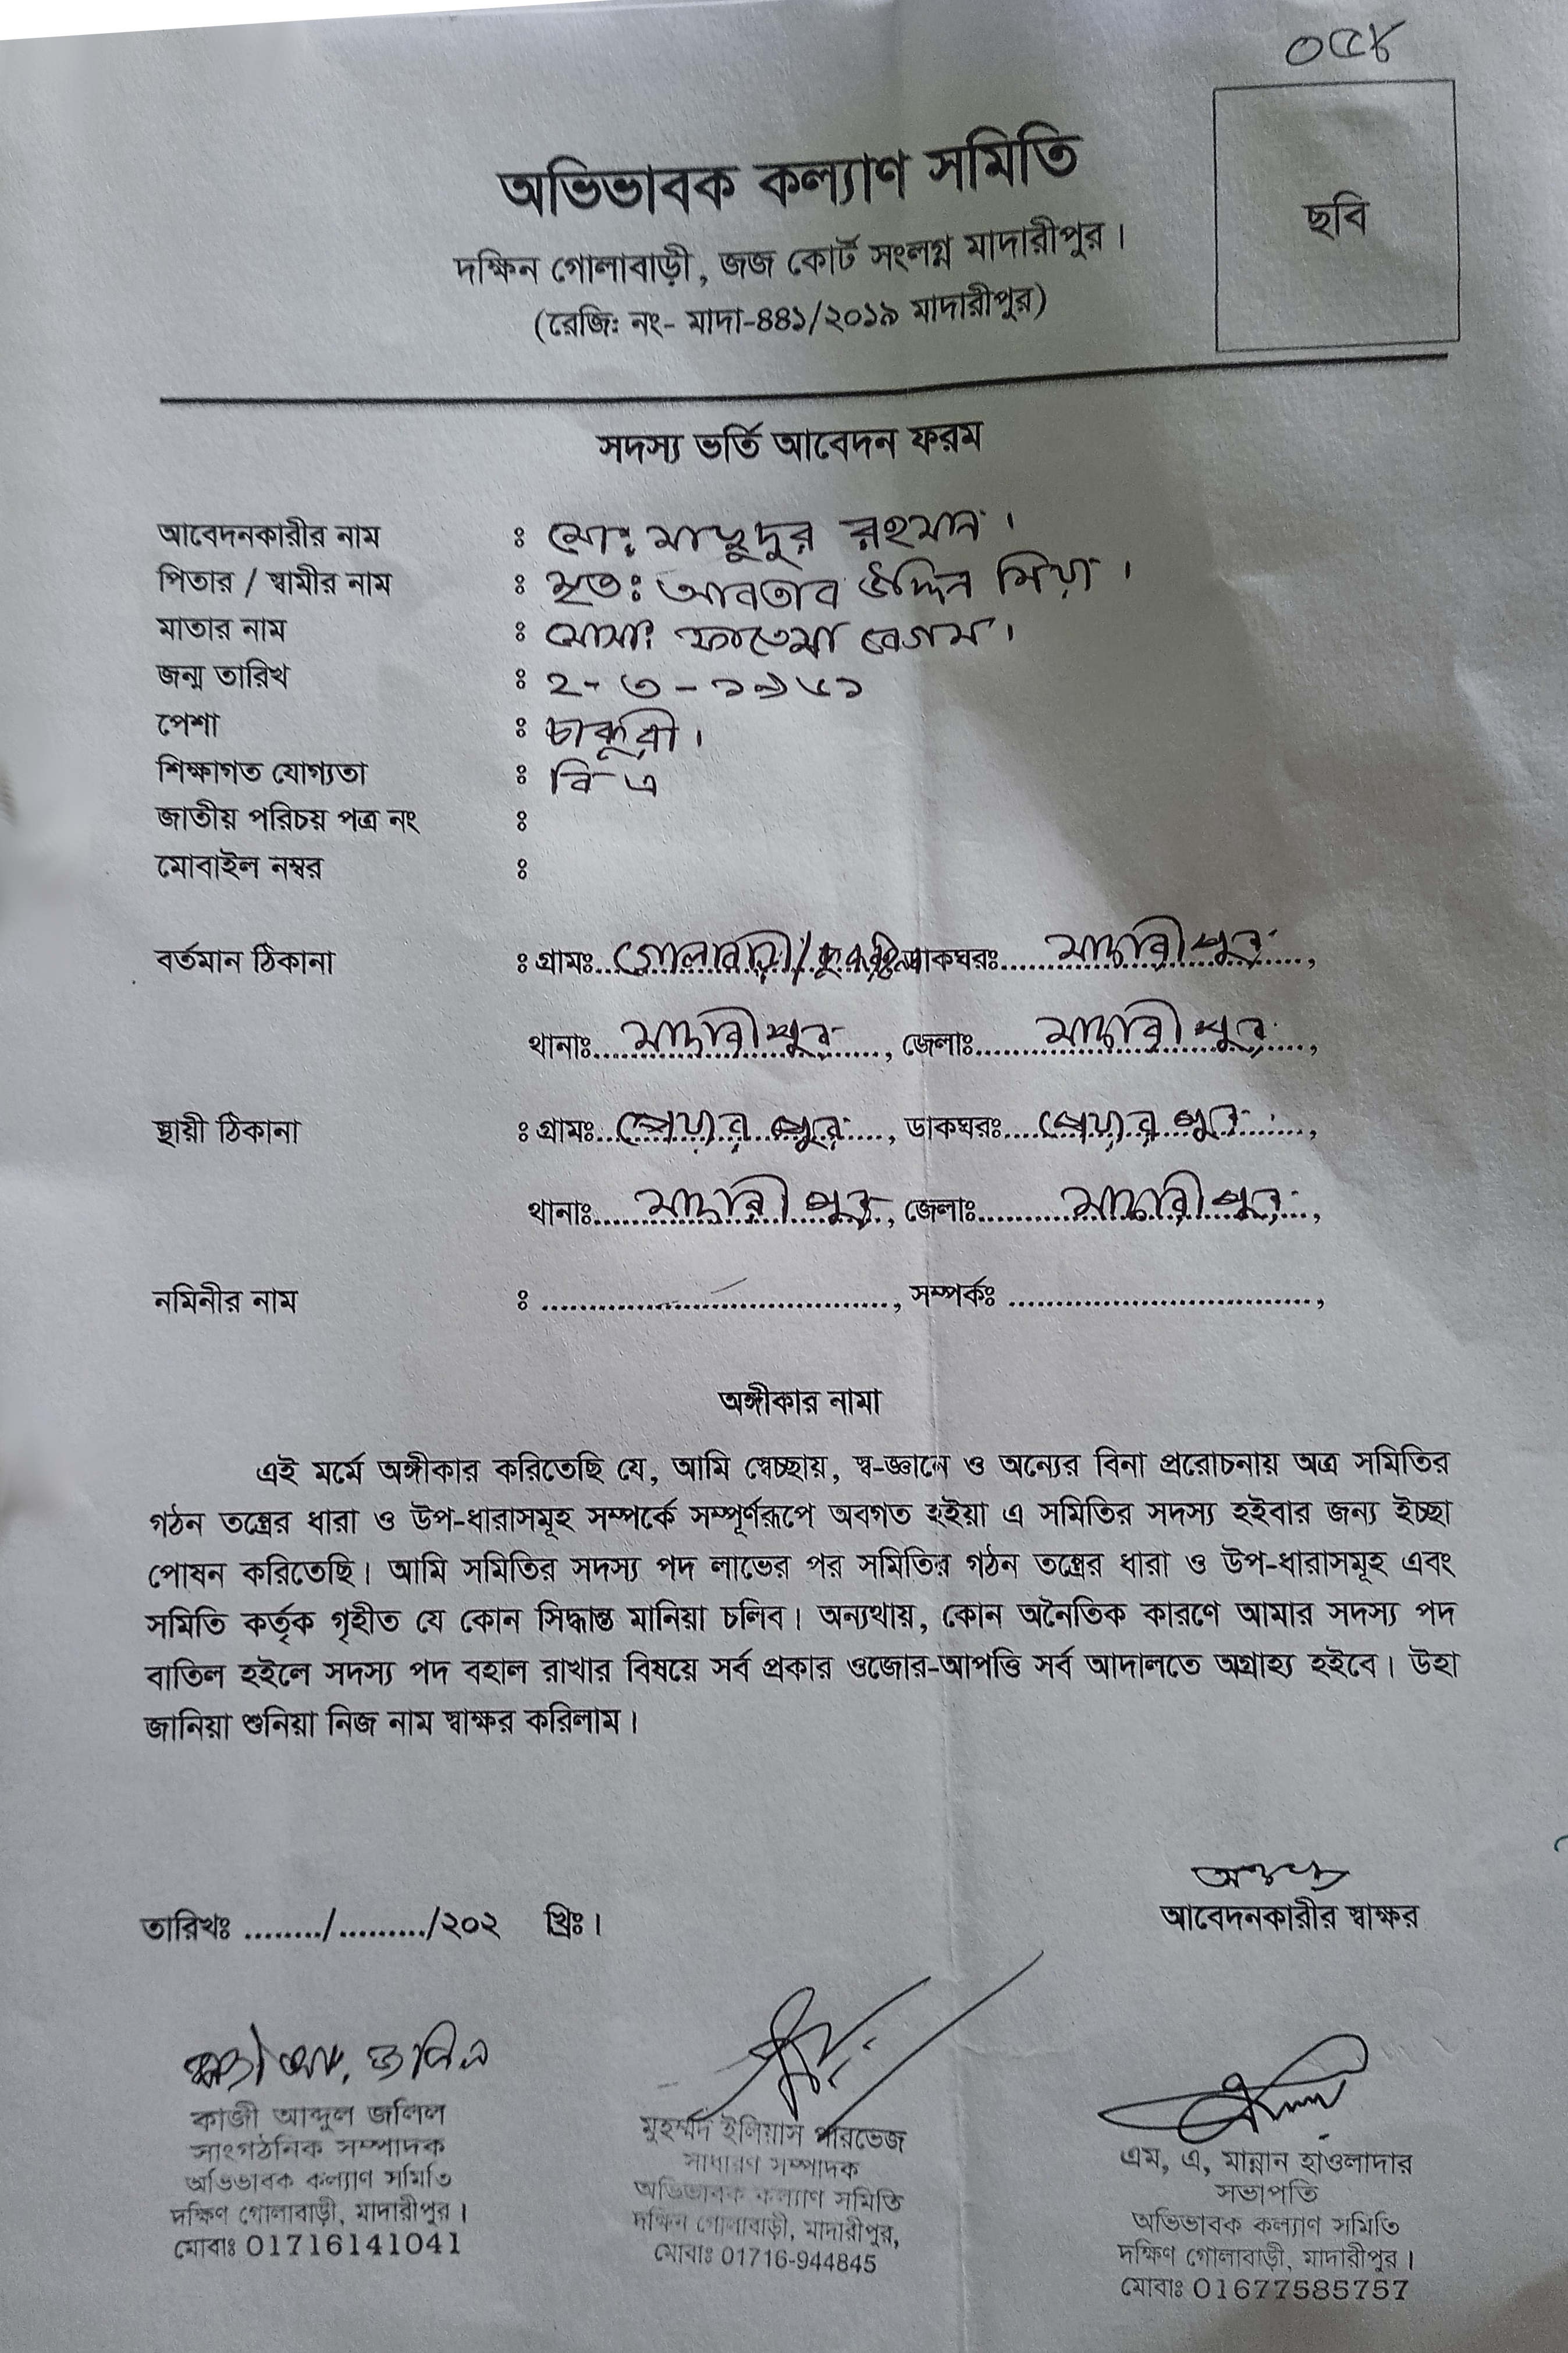 ০৫৪
ছবি
অভিভাবক কল্যাণ সমিতি
দক্ষিন গোলাবাড়ী, জজ কোর্ট সংলগ্ন মাদারীপুর।
(রেজি: নং- মাদা-৪৪১/২০১৯ মাদারীপুর)
সদস্য ভর্তি আবেদন ফরম
আবেদনকারীর নাম : মোঃ মাছুদুর রহমান।
পিতার / স্বামীর নাম : মৃতঃ আবতাব উদ্দিন মিয়া।
মাতার নাম : মোসাঃ ফাতেমা বেগম।
জন্ম তারিখ : ২-৩-১৯৫১
পেশা : চাকুরী।
শিক্ষাগত যোগ্যতা : বি এ
জাতীয় পরিচয় পত্র নং :
মোবাইল নম্বর :
বর্তমান ঠিকানা : গ্রামঃ গোলাবাড়ী/ ডাকঘরঃ মাদারীপুর,
থানাঃ মাদারীপুর, জেলাঃ মাদারীপুর,
স্থায়ী ঠিকানা : গ্রামঃ পেয়ারপুর, ডাকঘরঃ পেয়ারপুর,
থানাঃ মাদারীপুর, জেলাঃ মাদারীপুর,
নমিনীর নাম : ...................................., সম্পর্কঃ ................................,
অঙ্গীকার নামা
এই মর্মে অঙ্গীকার করিতেছি যে, আমি স্বেচ্ছায়, স্ব-জ্ঞানে ও অন্যের বিনা প্ররোচনায় অত্র সমিতির
গঠন তন্ত্রের ধারা ও উপ-ধারাসমূহ সম্পর্কে সম্পূর্ণরূপে অবগত হইয়া এ সমিতির সদস্য হইবার জন্য ইচ্ছা
পোষন করিতেছি। আমি সমিতির সদস্য পদ লাভের পর সমিতির গঠন তন্ত্রের ধারা ও উপ-ধারাসমূহ এবং
সমিতি কর্তৃক গৃহীত যে কোন সিদ্ধান্ত মানিয়া চলিব। অন্যথায়, কোন অনৈতিক কারণে আমার সদস্য পদ
বাতিল হইলে সদস্য পদ বহাল রাখার বিষয়ে সর্ব প্রকার ওজোর-আপত্তি সর্ব আদালতে অগ্রাহ্য হইবে। উহা
জানিয়া শুনিয়া নিজ নাম স্বাক্ষর করিলাম।
তারিখঃ ......../........./২০২ খ্রিঃ।
আবেদনকারীর স্বাক্ষর
কাজী আব্দুল জলিল
সাংগঠনিক সম্পাদক
অভিভাবক কল্যাণ সমিতি
দক্ষিণ গোলাবাড়ী, মাদারীপুর।
মোবাঃ 01716141041
মুহম্মদ ইলিয়াস পারভেজ
সাধারণ সম্পাদক
অভিভাবক কল্যাণ সমিতি
দক্ষিন গোলাবাড়ী, মাদারীপুর,
মোবাঃ 01716-944845
এম, এ, মান্নান হাওলাদার
সভাপতি
অভিভাবক কল্যাণ সমিতি
দক্ষিণ গোলাবাড়ী, মাদারীপুর।
মোবাঃ 01677585757